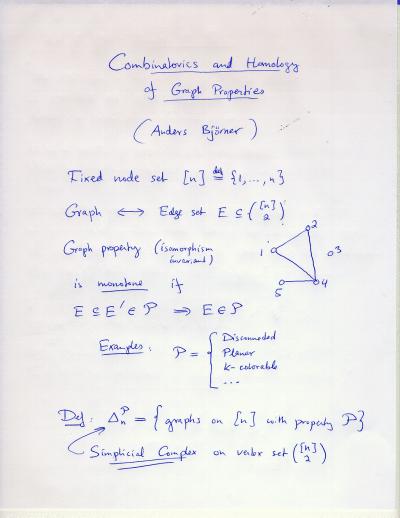 Combinatorics and Homology
of Graph Properties
(Anders Björner)
Fixed node set [n] def= {1,...,n}
Graph ⟷ Edge set E ⊆ ([n] 2)
Graph property (isomorphism
invariant)
is monotone if
E ⊆ E' ∈ P ⇒ E ∈ P
1
2
3
4
5
Examples: P = {
Disconnected
Planar
k-colorable
...
Def: Δₙᴾ = {graphs on [n] with property P}
Simplicial Complex on vertex set ([n] 2)